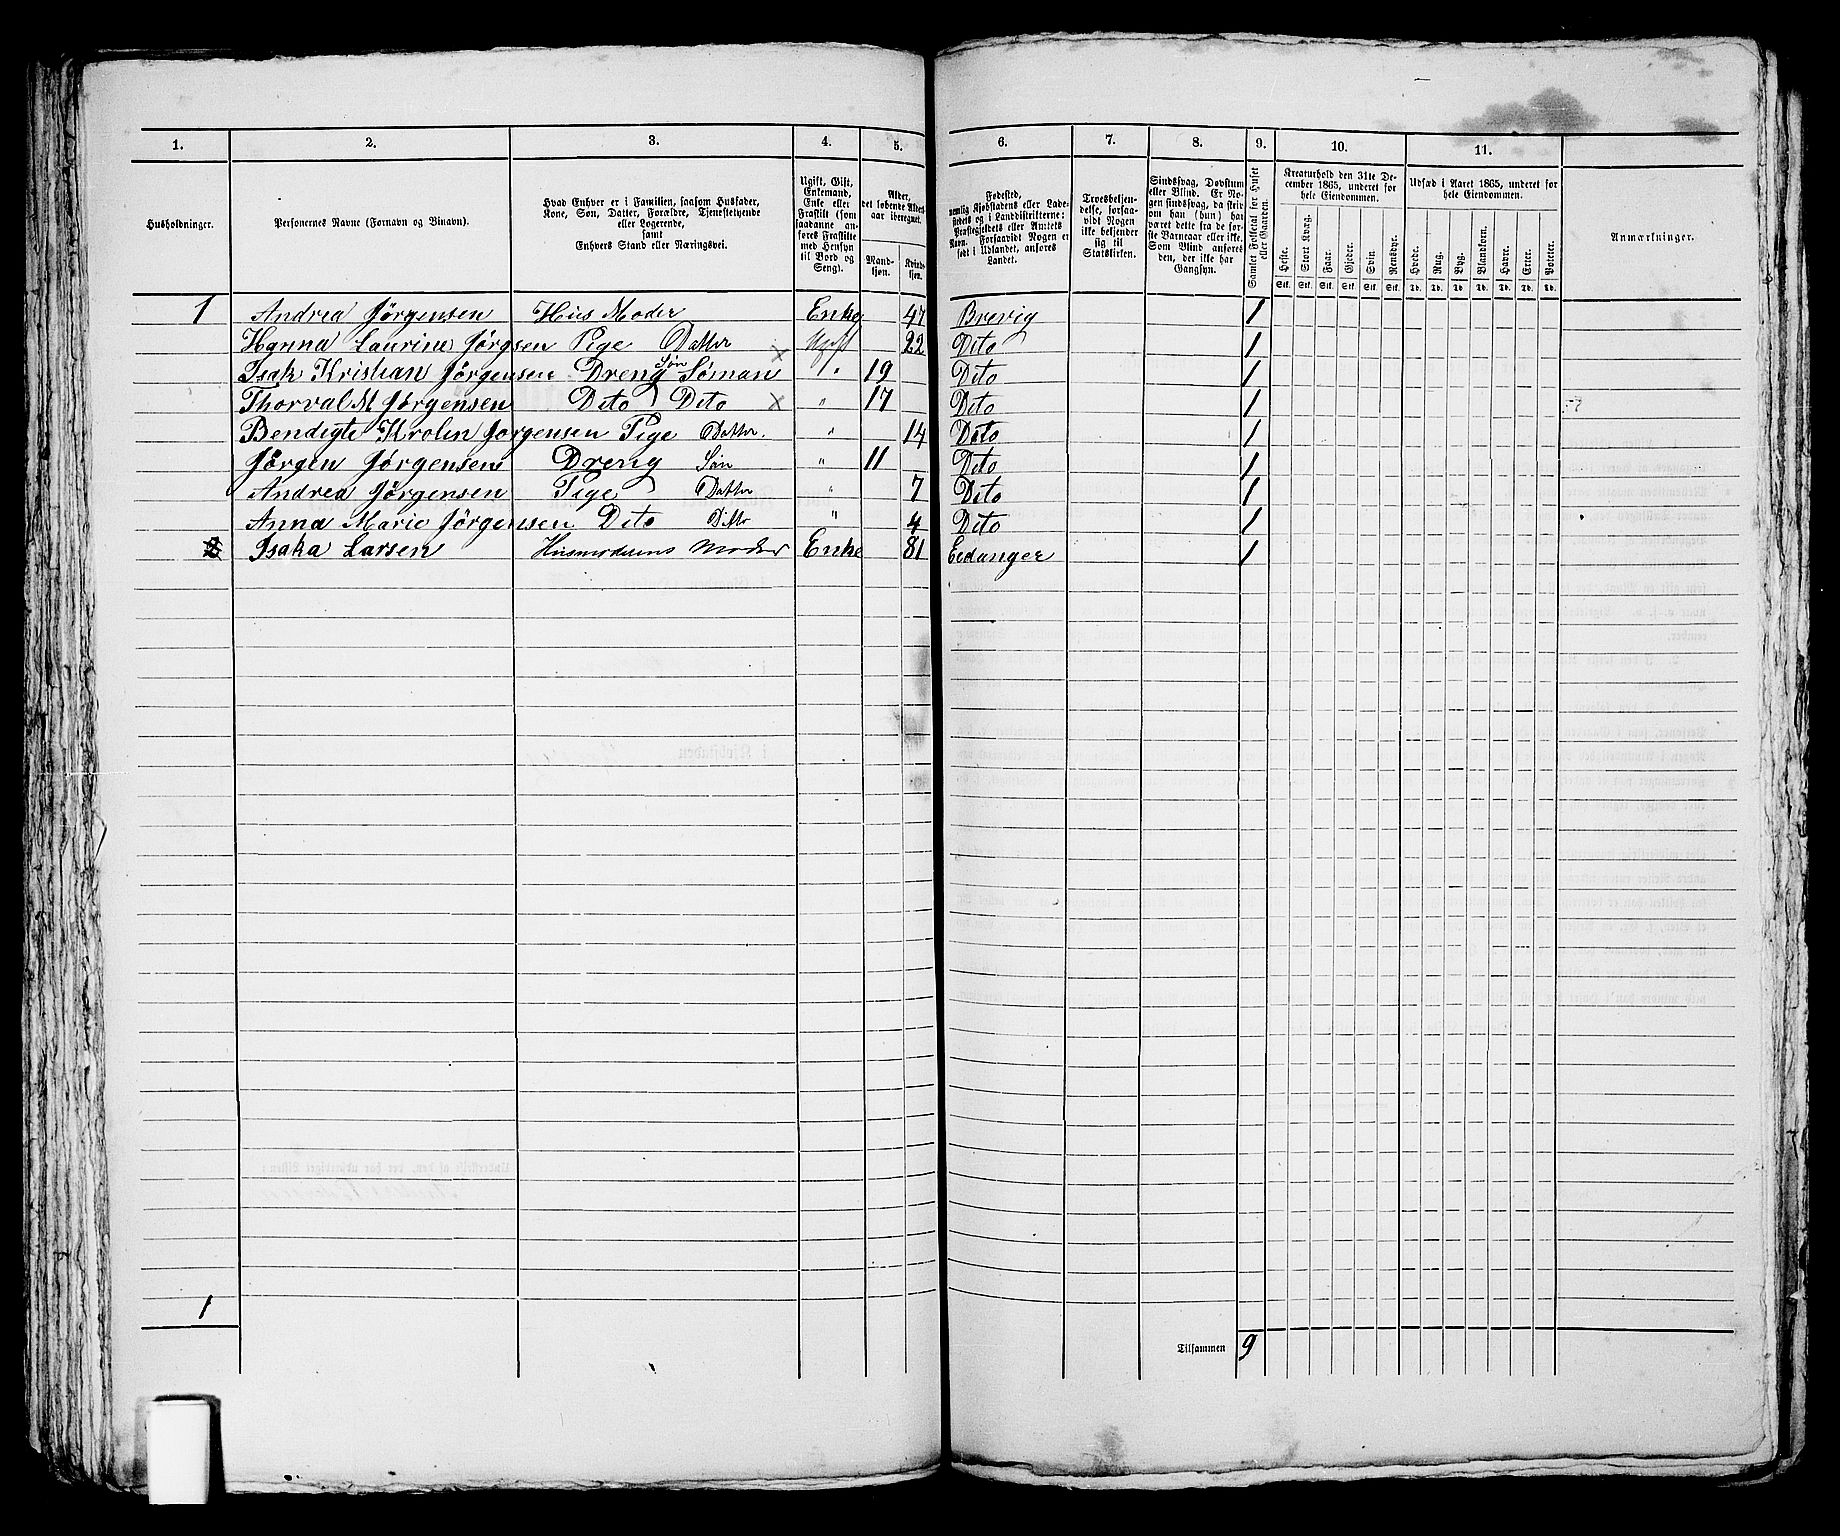 1. 2. 3. 4. 5. 6. 7. 8. 9. 10. 11.
Husholdninger.
Personernes Navne (Fornavn og Binavn).
Hvad Enhver er i Familien, saasom Husfader,
Kone, Søn, Datter, Forældre, Tjenestetyende
eller Logerende,
samt
Enhvers Stand eller Næringsvei.
Ugift, Gift,
Enkemand,
Enke eller
Fraskilt (som
saadanne an-
føres Fraskilte
med Hensyn
til Bord og
Seng).
Alder,
det løbende Alders-
aar iberegnet.
Mand-
kjøn.
Kvind-
kjøn.
Fødested,
nemlig Kjøbstadens eller Lade-
stedets og i Landdistrikterne:
Præstegjeldets eller Amtets
Navn. Forsaavidt Nogen er
født i Udlandet, anføres
Landet.
Troesbekjen-
delse, forsaa-
vidt Nogen
ikke bekjender
sig til
Statskirken.
Sindssvag, Døvstum
eller Blind. Er No-
gen sindssvag, da skriv
om han (hun) har
været dette fra de før-
ste Barneaar eller ikke.
Som Blind anføres
den, der ikke har
Gangsyn.
Samlet Folketal for Huset
eller Gaarden.
Kreaturhold den 31te De-
cember 1865, underet for
hele Eiendommen.
Heste. Stort Kvæg. Faar. Gjeder. Svin Rensdyr.
Stk. Stk. Stk. Stk. Stk. Stk.
Udsæd i Aaret 1865, underet for
hele Eiendommen.
Hvede. Rug. Byg. Blandkorn. Havre. Erter. Poteter.
Td. Td. Td. Td. Td. Td. Td.
Anmærkninger.
1 Andrea Jørgensen Hus Moder Enke 47 Brevig 1
Hanna Laurine Jørgsen Pige Datter Ugift 22 Dito 1
Isak Kristian Jørgensen Dreng Søn Søman " 19 Dito 1
Thorval M Jørgensen Dito Dito " 17 Dito 1
Bendigte Krolin Jorgensen Pige Datter. " 14 Dito 1
Jørgen Jørgensen Dreng Søn " 11 Dito 1
Andrea Jørgensen Pige Datter " 7 Dito 1
Anna Marie Jørgensen Dito Ditto " 4 Dito 1
2 Isaka Larsen Husmoderens Moder Enke 81 Eidanger 1
1
Tilsammen 9